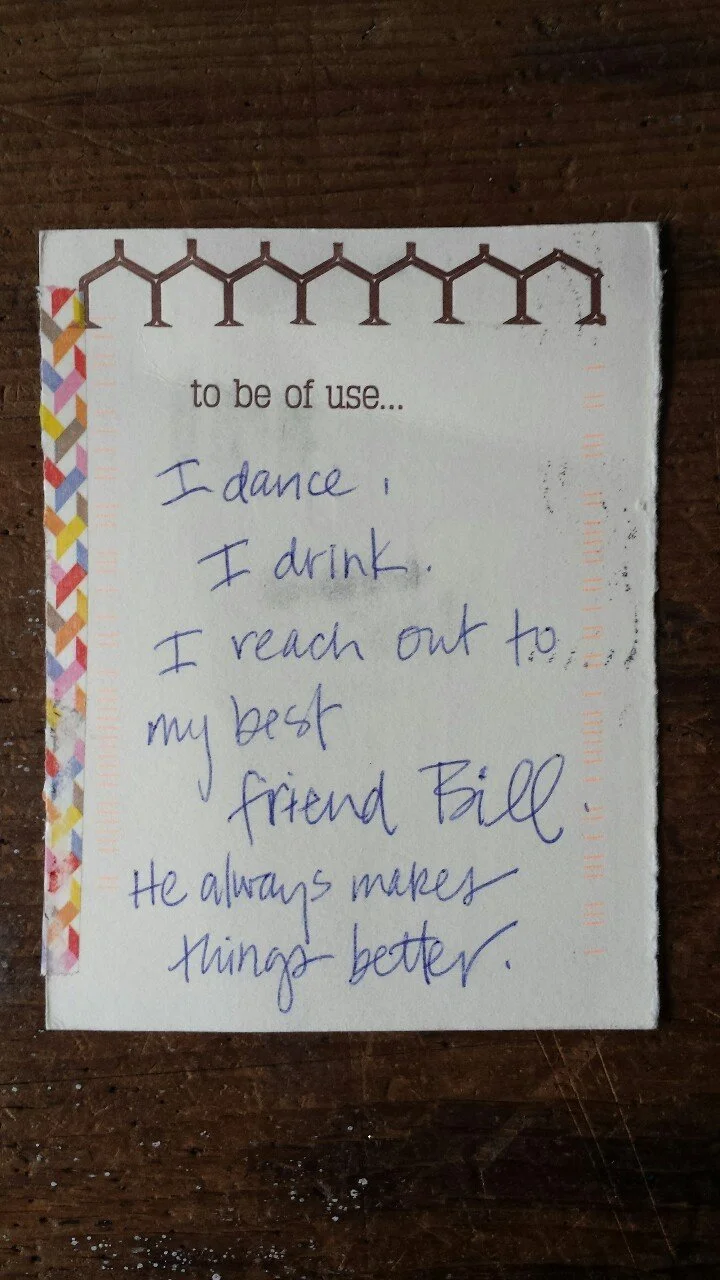 to be of use...
I dance.
I drink.
I reach out to
my best
friend Bill.
He always makes
things better.